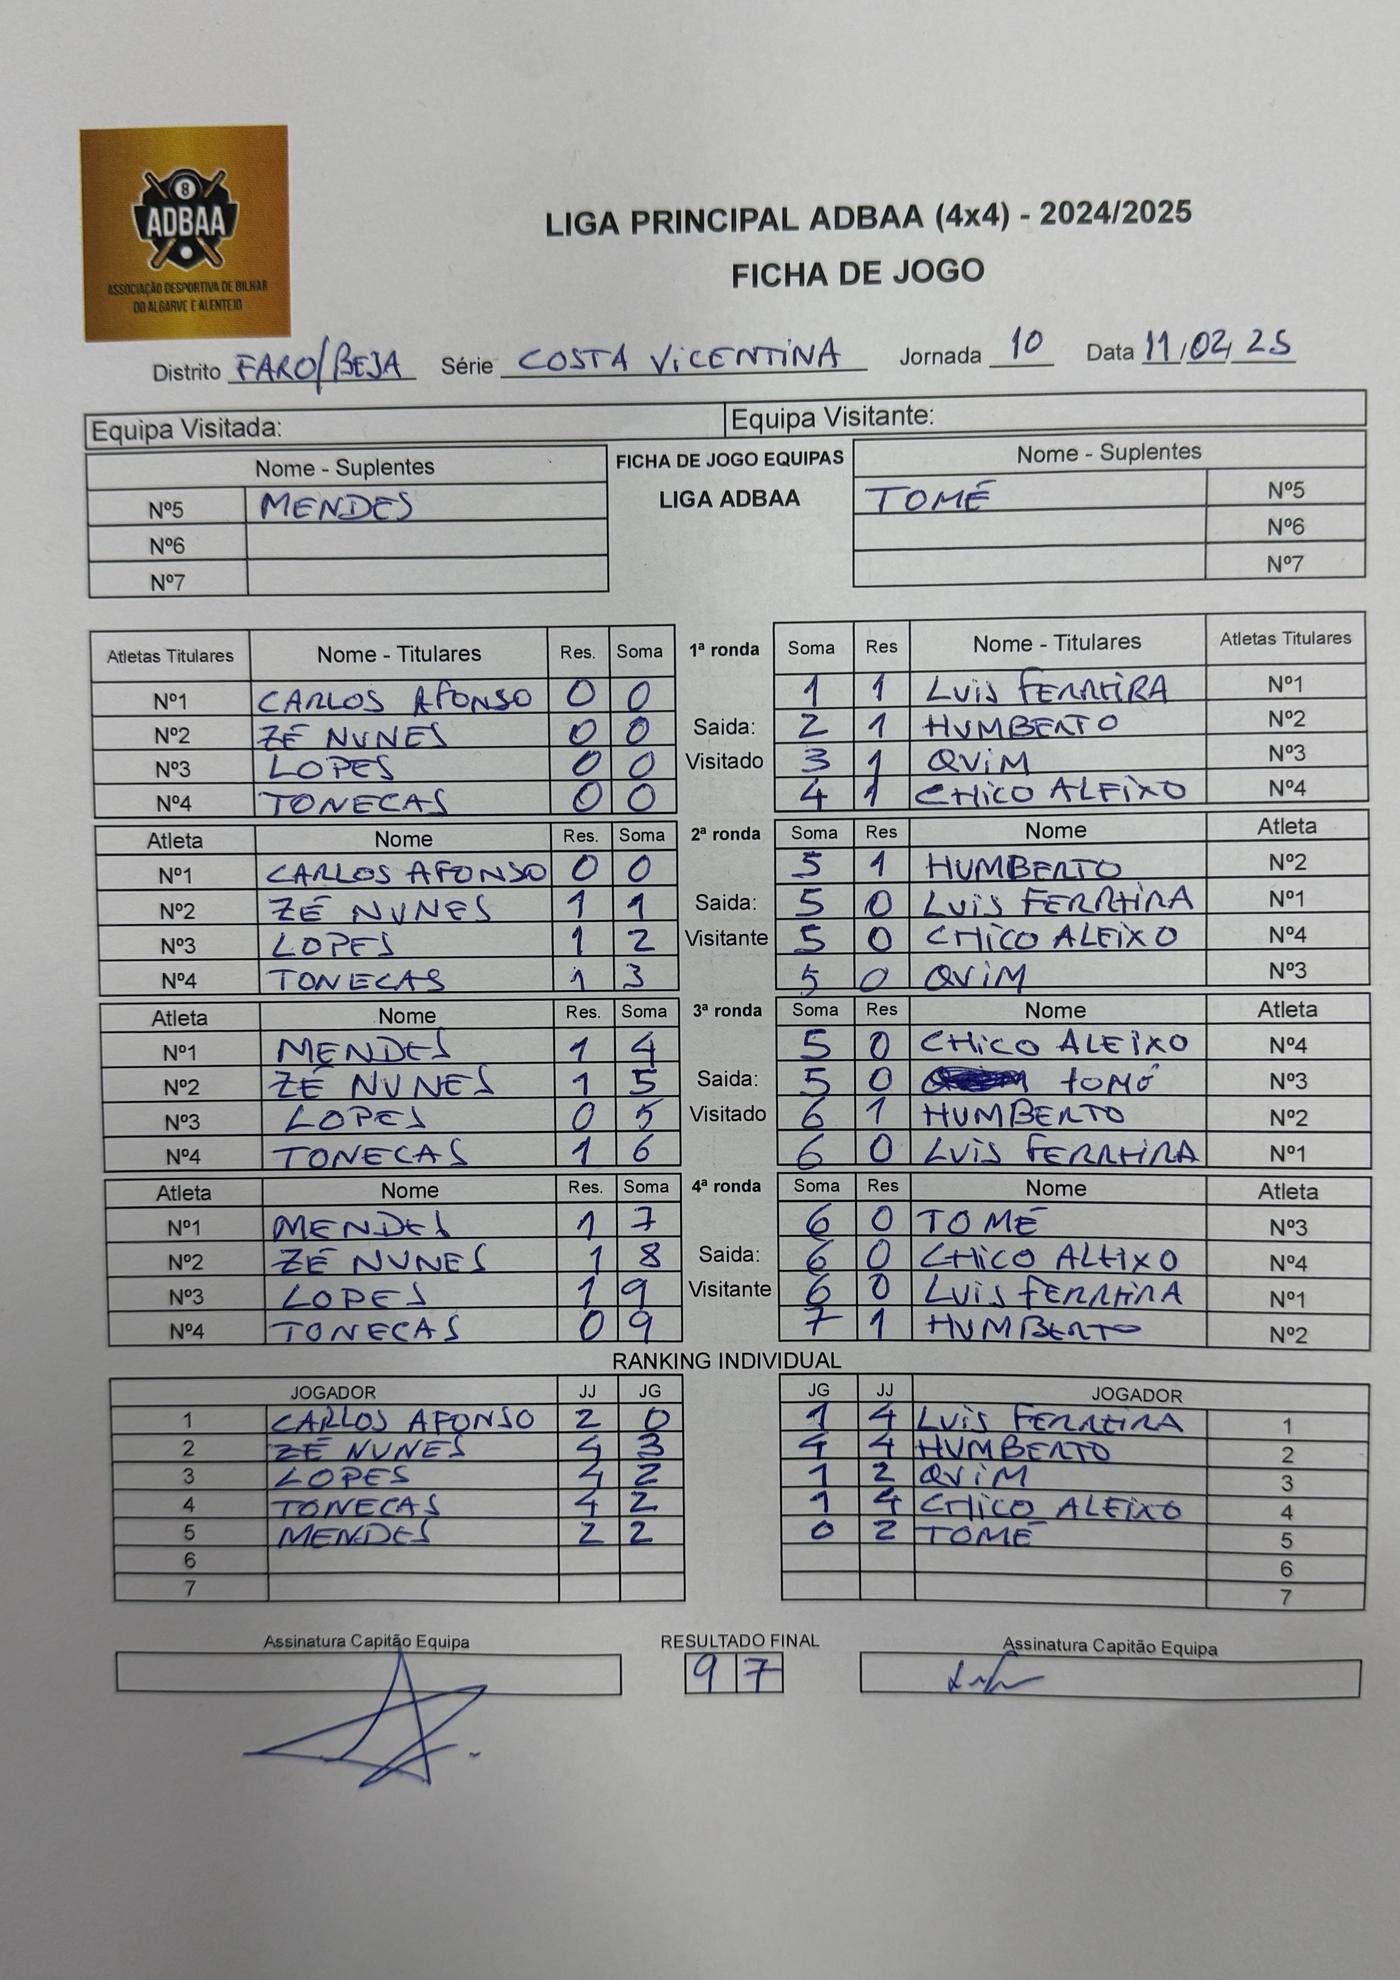 8
ADBAA
ASSOCIAÇÃO DESPORTIVA DE BILHAR
DO ALGARVE E ALENTEJO
LIGA PRINCIPAL ADBAA (4x4) - 2024/2025
FICHA DE JOGO
Distrito FARO/BEJA Série COSTA ViCENTiNA Jornada 10 Data 11/02/25
Equipa Visitada: Equipa Visitante:
Nome - Suplentes FICHA DE JOGO EQUIPAS Nome - Suplentes
Nº5 MENDES LIGA ADBAA TOMÉ Nº5
Nº6 Nº6
Nº7 Nº7
Atletas Titulares Nome - Titulares Res. Soma 1ª ronda Soma Res Nome - Titulares Atletas Titulares
Nº1 CARLOS AFONSO 0 0 1 1 LUiS FERREiRA Nº1
Nº2 ZÉ NUNES 0 0 Saida: 2 1 HUMBERTO Nº2
Nº3 LOPES 0 0 Visitado 3 1 QUiM Nº3
Nº4 TONECAS 0 0 4 1 CHiCO ALEiXO Nº4
Atleta Nome Res. Soma 2ª ronda Soma Res Nome Atleta
Nº1 CARLOS AFONSO 0 0 5 1 HUMBERTO Nº2
Nº2 ZÉ NUNES 1 1 Saida: 5 0 LUiS FERREiRA Nº1
Nº3 LOPES 1 2 Visitante 5 0 CHiCO ALEiXO Nº4
Nº4 TONECAS 1 3 5 0 QUiM Nº3
Atleta Nome Res. Soma 3ª ronda Soma Res Nome Atleta
Nº1 MENDES 1 4 5 0 CHiCO ALEiXO Nº4
Nº2 ZÉ NUNES 1 5 Saida: 5 0 TOMÉ Nº3
Nº3 LOPES 0 5 Visitado 6 1 HUMBERTO Nº2
Nº4 TONECAS 1 6 6 0 LUiS FERREiRA Nº1
Atleta Nome Res. Soma 4ª ronda Soma Res Nome Atleta
Nº1 MENDES 1 7 6 0 TOMÉ Nº3
Nº2 ZÉ NUNES 1 8 Saida: 6 0 CHiCO ALEiXO Nº4
Nº3 LOPES 1 9 Visitante 6 0 LUiS FERREiRA Nº1
Nº4 TONECAS 0 9 7 1 HUMBERTO Nº2
RANKING INDIVIDUAL
JOGADOR JJ JG JG JJ JOGADOR
1 CARLOS AFONSO 2 0 1 4 LUiS FERREiRA 1
2 ZÉ NUNES 4 3 4 4 HUMBERTO 2
3 LOPES 4 2 1 2 QUiM 3
4 TONECAS 4 2 1 4 CHiCO ALEiXO 4
5 MENDES 2 2 0 2 TOMÉ 5
6 6
7 7
Assinatura Capitão Equipa RESULTADO FINAL Assinatura Capitão Equipa
9 7